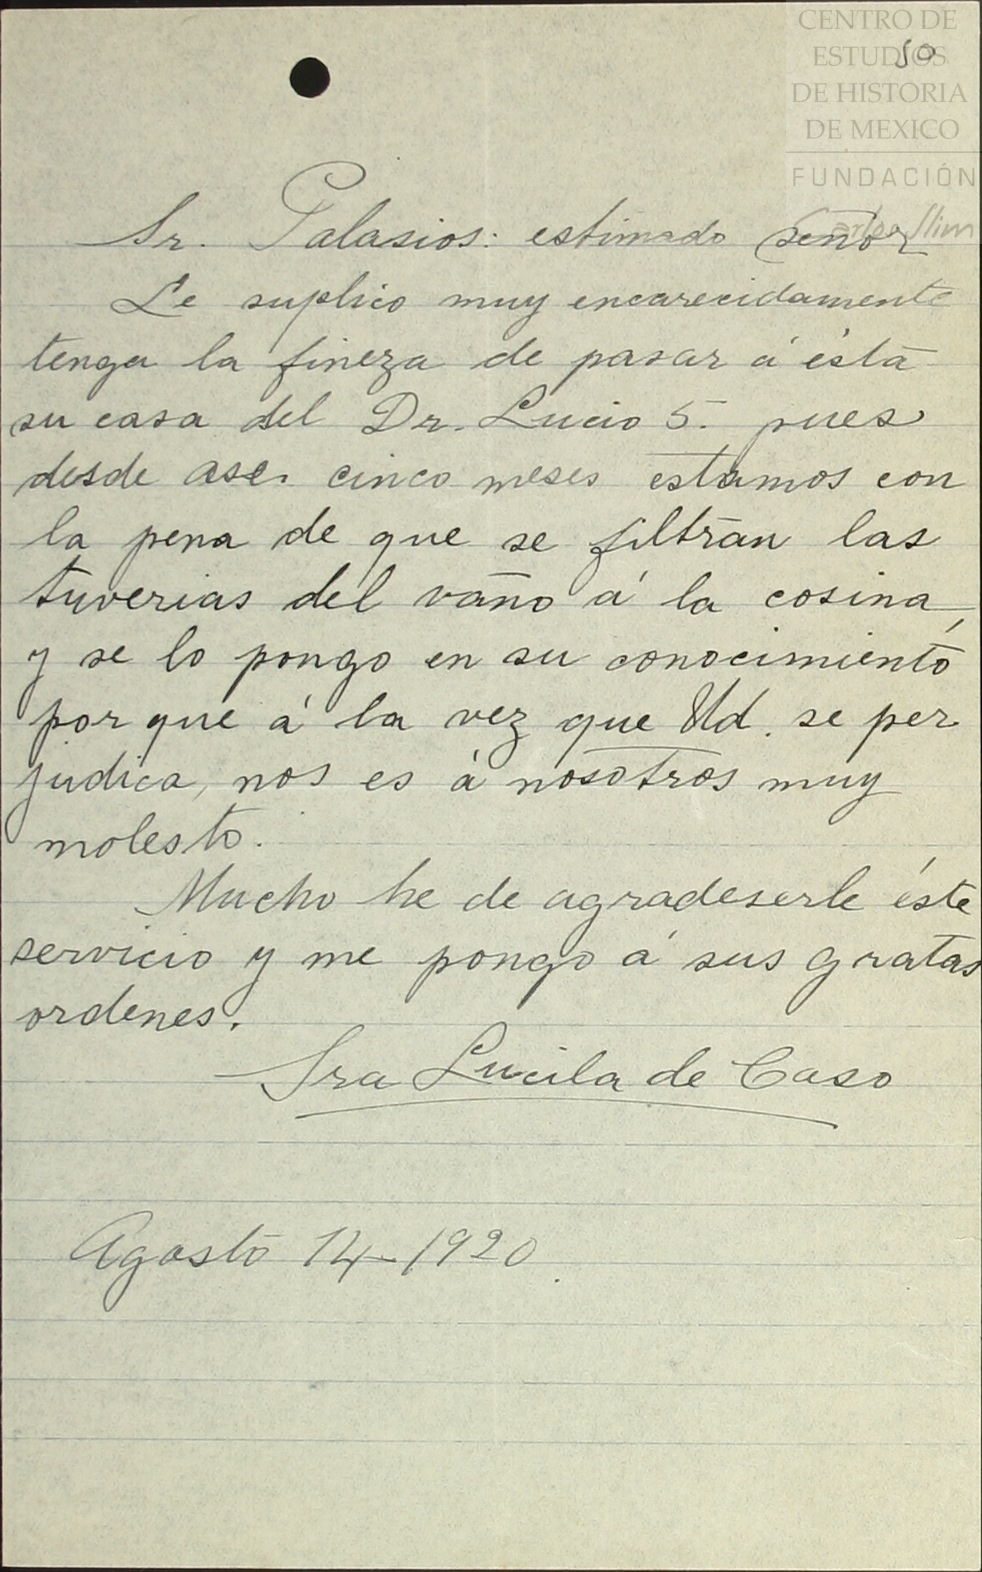 CENTRO DE
ESTUDIOS
DE HISTORIA
DE MEXICO
FUNDACIÓN
Carlos Slim
50
Sr. Palasios: estimado señor
Le suplico muy encarecidamente
tenga la fineza de pasar á ésta
su casa del Dr. Lucio 5. pues
desde ase. cinco meses estamos con
la pena de que se filtran las
tuverias del vaño á la cosina,
y se lo pongo en su conocimiento
por que á la vez que Ud. se per
judica, nos es á nosotros muy
molesto.
Mucho he de agradeserle éste
servicio y me pongo á sus gratas
ordenes.
Sra Lucila de Caso
Agosto 14-1920.